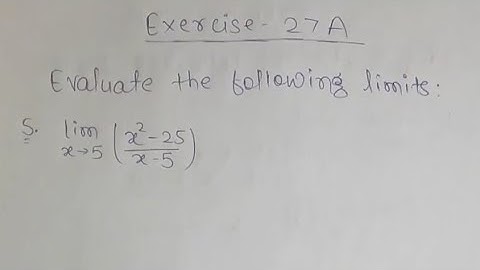 Exercise - 27A
Evaluate the following limits:
5. lim x→5 (x² - 25 / x - 5)